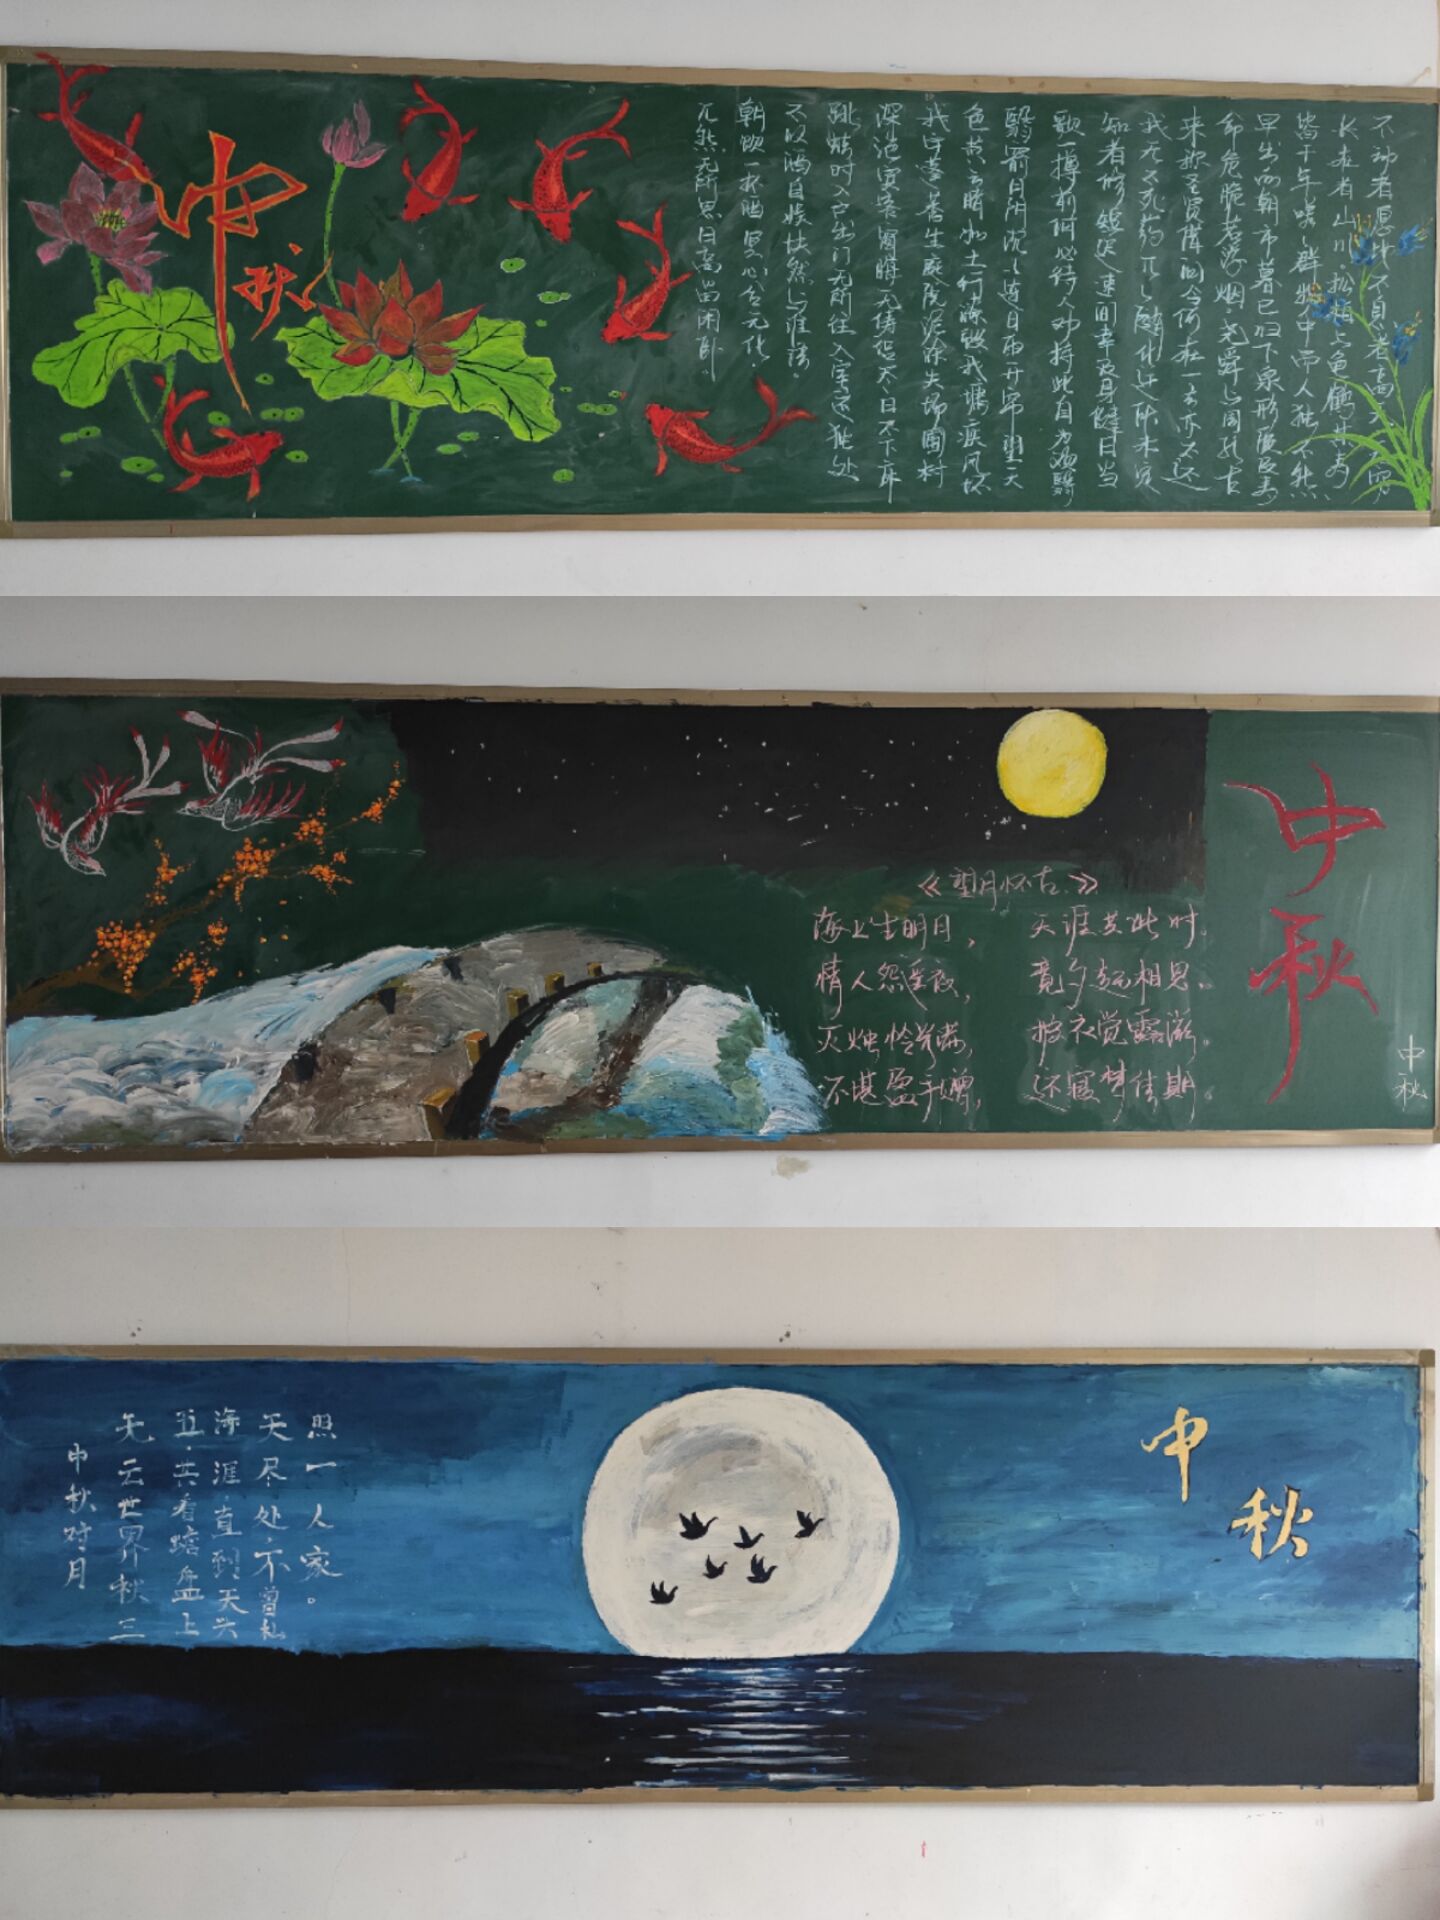 中秋
不动者愿地不息者高天
长在者山川松柏与龟鹤其寿
皆千年嗟嗟群物中而人独不然
早出向朝市暮已归下泉形质及寿
命危脆若浮烟尧舜与周孔古
来称圣贤借问今何在一去亦不还
我无不死药兀兀随化迁所未定
知者修短迟速间幸及身健日当
歌一樽前何必待人劝持此自为
翳翳逾月阴沉沉连日雨开帘望天
色黄云暗如土行潦毁我墉疾风坏
我宇蓬莠生庭院泥涂失场圃村
深绝宾客窗晦无俦侣尽日不下床
跳蛙时入户出门无所往入室还独处
不以酒自娱块然与谁语。
朝饮一杯酒冥心合元化,
兀然无所思日高尚闲卧
《望月怀古》
海上生明月, 天涯共此时。
情人怨遥夜, 竟夕起相思。
灭烛怜光满, 披衣觉露滋。
不堪盈手赠, 还寝梦佳期。
中秋
中秋
中秋对月
无云世界秋三
五.共看蟾盘上
海涯.直到天头
天尽处.不曾私
照一人家。
中秋